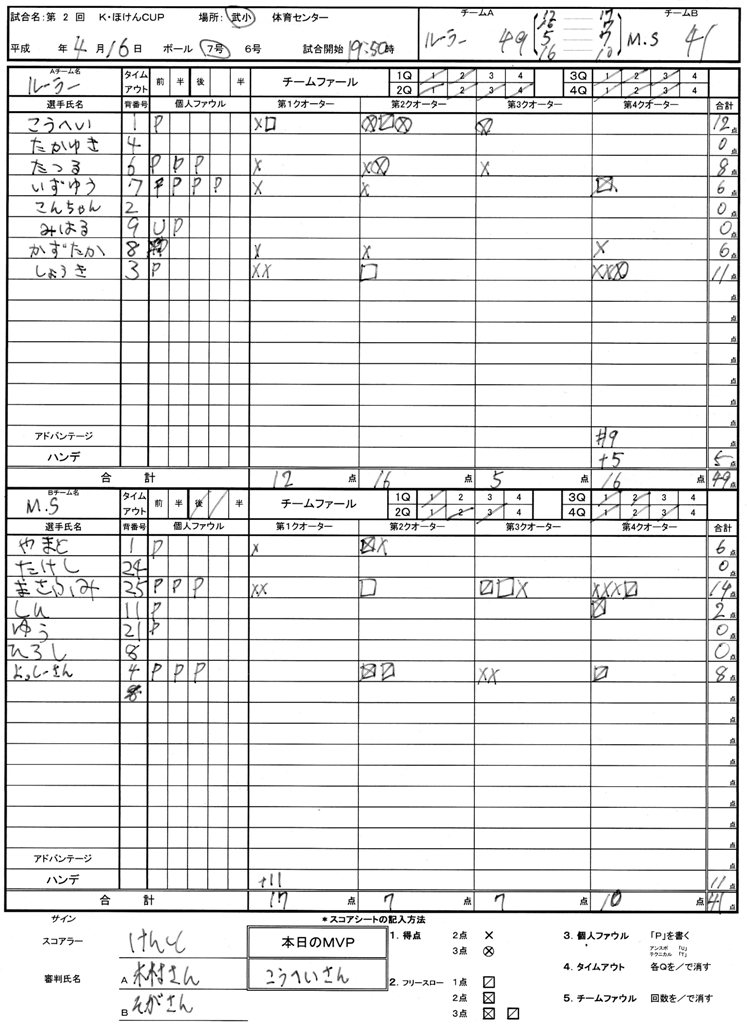 試合名：第 2 回 K・ほけんCUP 場所： 武小 体育センター
平成 年 4 月 16 日 ボール 7号 6号 試合開始 19:50 時
チームA チームB
ルーラー 49 M.S 41
12 17
16 7
5 7
16 10
Aチーム名 ルーラー タイムアウト 前 半 後 半 チームファール 1Q 1 2 3 4 3Q 1 2 3 4
2Q 1 2 3 4 4Q 1 2 3 4
選手氏名 背番号 個人ファウル 第1クオーター 第2クオーター 第3クオーター 第4クオーター 合計
こうへい 1 P X 12点
たかゆき 4 0点
たつる 6 P P P X X X 8点
いずゆう 7 P P P P X X 6点
こんちゃん 2 0点
みはる 9 U P 0点
かずたか 8 X X X 6点
しょうき 3 P XX XX 11点
アドバンテージ #9
ハンデ +5 5点
合 計 12 点 16 点 5 点 16 点 49点
Bチーム名 M.S タイムアウト 前 半 後 半 チームファール 1Q 1 2 3 4 3Q 1 2 3 4
2Q 1 2 3 4 4Q 1 2 3 4
選手氏名 背番号 個人ファウル 第1クオーター 第2クオーター 第3クオーター 第4クオーター 合計
やまと 1 P X X 6点
たけし 24 0点
まさふみ 25 P P P XX X XXX 14点
しん 11 P 2点
ゆう 21 P 0点
ひろし 8 0点
よっしーさん 4 P P P XX 8点
アドバンテージ
ハンデ +11 11点
合 計 17 点 7 点 7 点 10 点 41点
サイン
スコアラー けんと
審判氏名 A 木村さん
B そがさん
本日のMVP
こうへいさん
＊スコアシートの記入方法
1. 得点 2点 ×
3点 ⊗
2. フリースロー 1点 ⍁
2点 ☒
3点 ☒ ⍁
3. 個人ファウル 「P」を書く
アンスポ 「U」
テクニカル 「T」
4. タイムアウト 各Qを／で消す
5. チームファウル 回数を／で消す